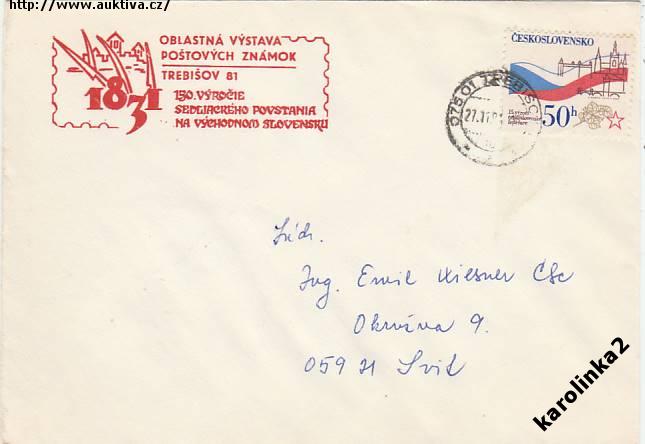 http://www.auktiva.cz/
OBLASTNÁ VÝSTAVA
POŠTOVÝCH ZNÁMOK
TREBIŠOV 81
1831
150. VÝROČIE
SEDLIACKÉHO POVSTANIA
NA VÝCHODNOM SLOVENSKU
ČESKOSLOVENSKO
50h
075 01 TREBIŠO
27.11.8
Súdr.
Ing. Emil Wiesner CSc
Okružná 9.
059 21 Svit
karolinka2